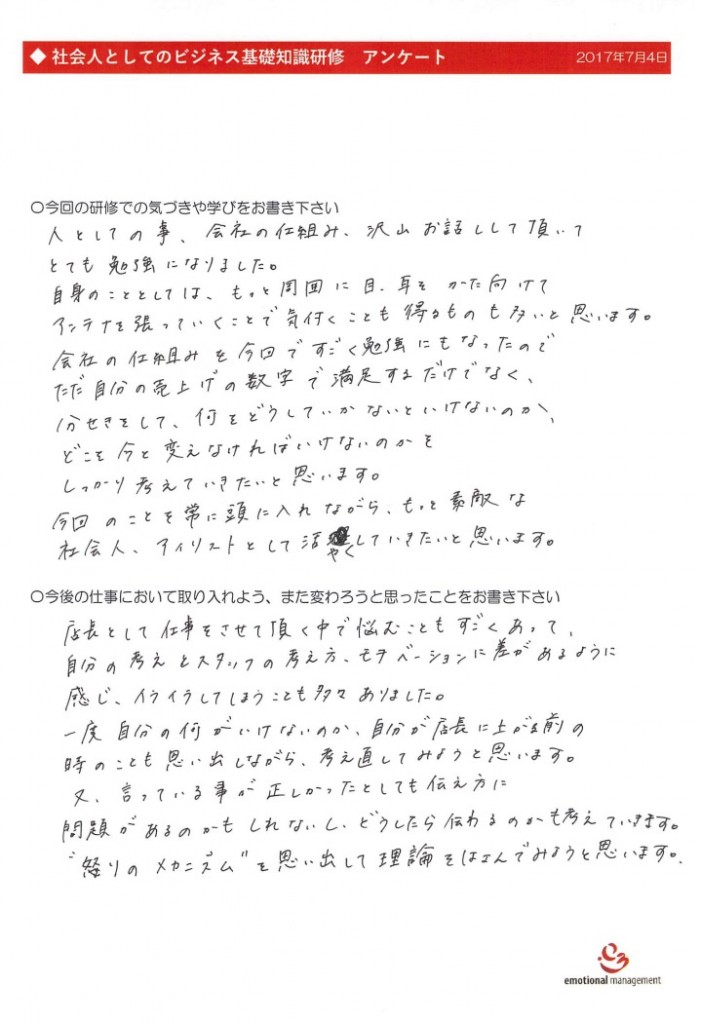 ◆ 社会人としてのビジネス基礎知識研修 アンケート 2017年7月4日
〇今回の研修での気づきや学びをお書き下さい
人としての事、会社の仕組み、沢山お話しして頂いて
とても勉強になりました。
自身のこととしては、もっと周囲に目、耳をかた向けて
アンテナを張っていくことで気付くことも得るものも多いと思います。
会社の仕組みを今回ですごく勉強にもなったので
ただ自分の売上げの数字で満足するだけでなく、
分せきをして、何をどうしていかないといけないのか、
どこを今と変えなければいけないのかを
しっかり考えていきたいと思います。
今回のことを常に頭に入れながら、もっと素敵な
社会人、アイリストとして活やくしていきたいと思います。
〇今後の仕事において取り入れよう、また変わろうと思ったことをお書き下さい
店長として仕事をさせて頂く中で悩むこともすごくあって、
自分の考えとスタッフの考え方、モチベーションに差があるように
感じ、イライラしてしまうことも多々ありました。
一度自分の何がいけないのか、自分が店長に上がる前の
時のことも思い出しながら、考え直してみようと思います。
又、言っている事が正しかったとしても伝え方に
問題があるのかもしれないし、どうしたら伝わるのかも考えていきます。
"怒りのメカニズム"を思い出して理論をはさんでみようと思います。
emotional management